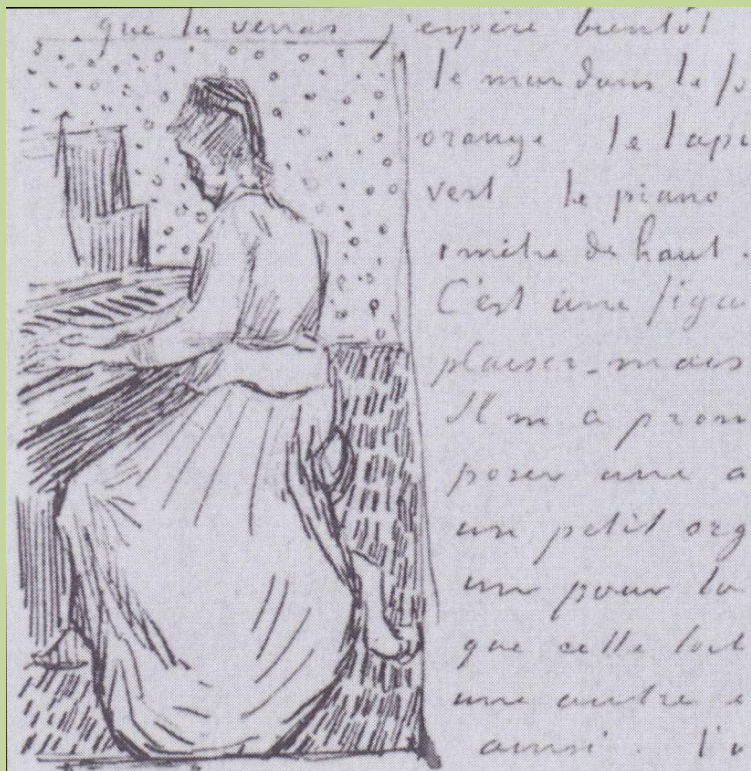 que tu verras j'espère bientôt
le mur dans le fo
orange le tapi
vert le piano
1 mètre de haut.
C'est une figu
plaisir - mais
Il m'a prom
poser une a
un petit org
un pour to
que cette toi
une autre e
ainsi. l'u